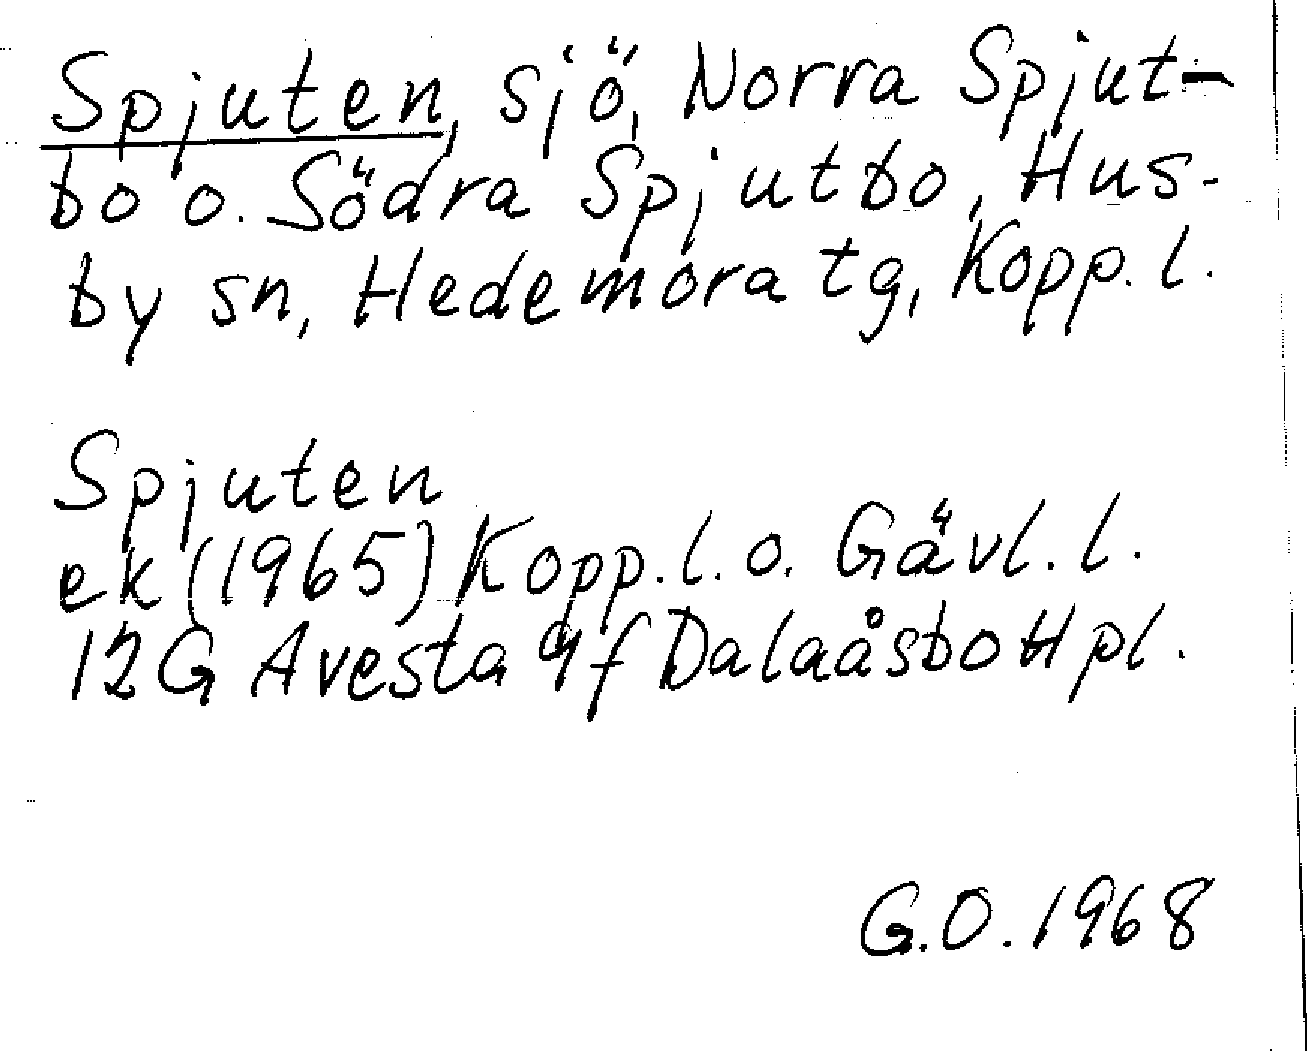 Spjuten, sjö, Norra Spjut-
bo o. Södra Spjutbo, Hus-
by sn, Hedemora tg, Kopp. l.
Spjuten
ek (1965) Kopp. l. o. Gävl. l.
12G Avesta 9f Dalaåsbo Hpl.
G.O. 1968